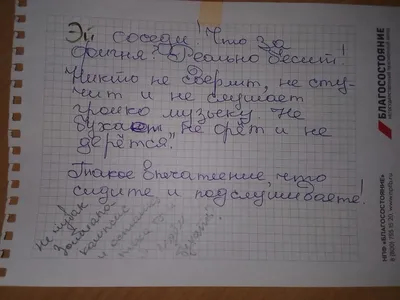 Эй соседи! Что за
фигня? Реально бесит!
Никто не сверлит, не сту-
чит и не слушает
громко музыку. Не
бухает, не орёт и не
дерётся.
Такое впечатление, что
сидите и подслушиваете!
Не
и
БЛАГОСОСТОЯНИЕ
НПФ «БЛАГОСОСТОЯНИЕ»